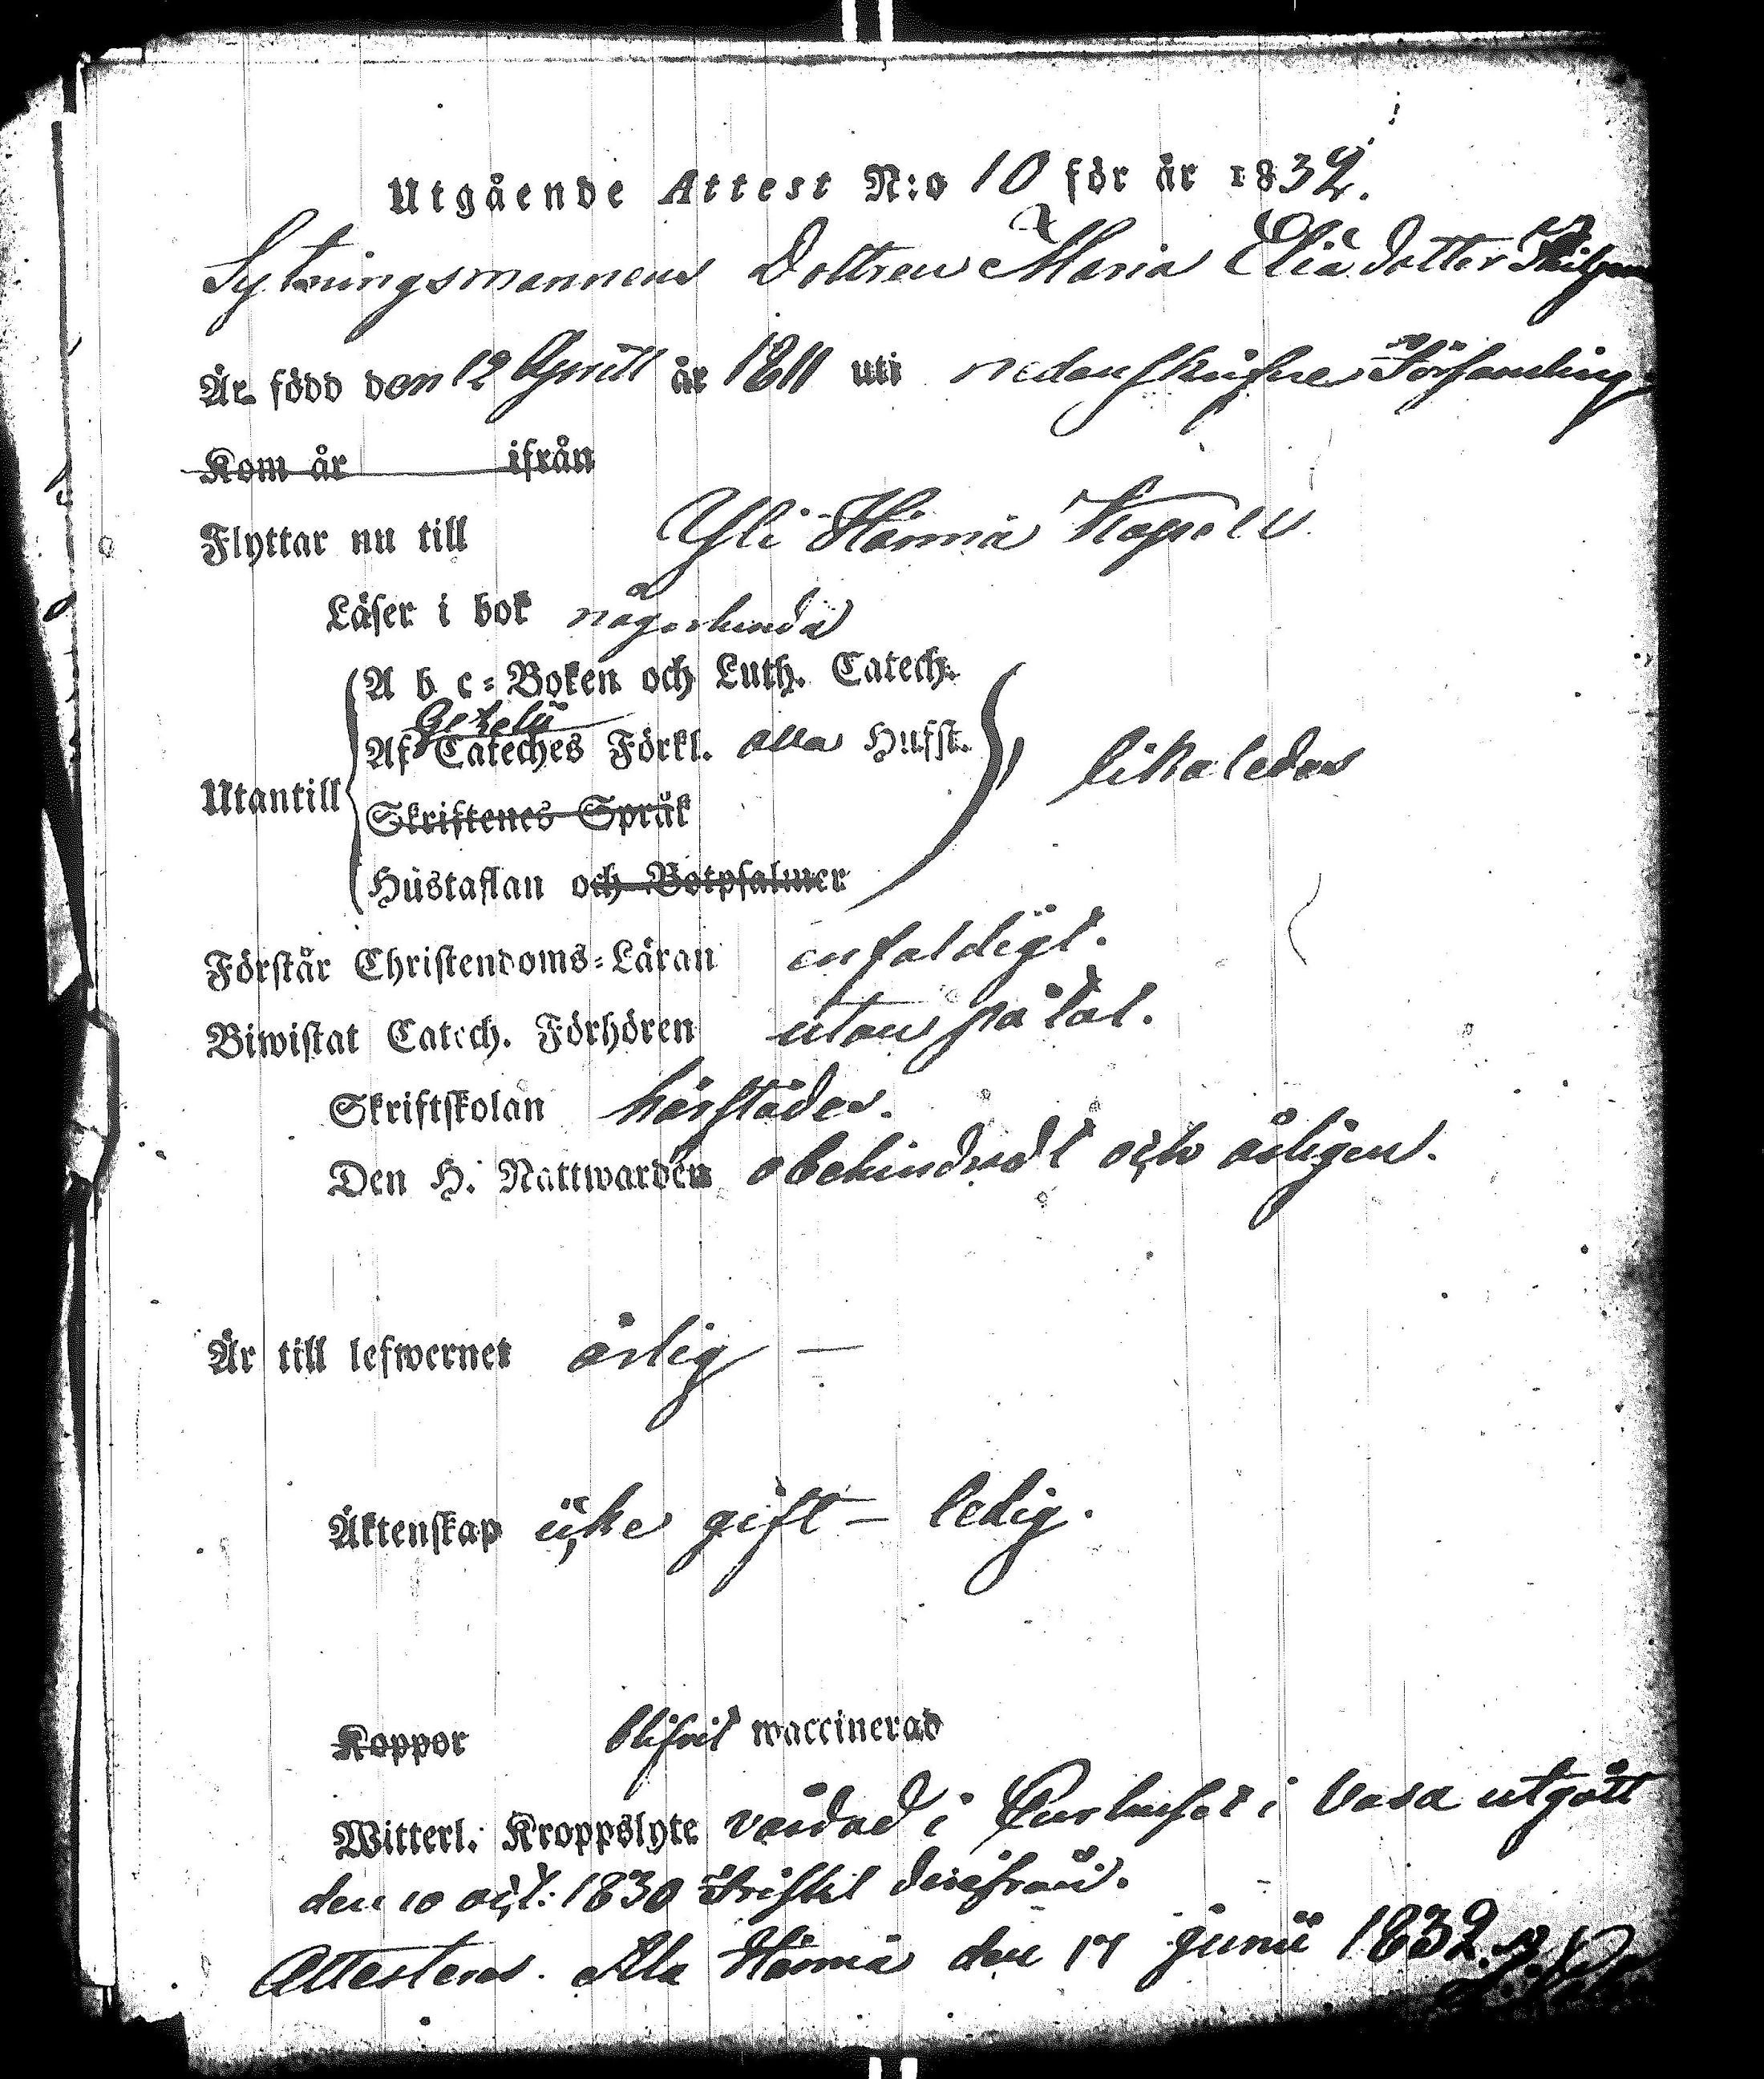 Utgående Attest N:o 10 för år 1832.
Sytningsmannens Dottren Maria Eliä dotter
Är född den 12 Aprill år 1811 uti nedanskrifne Församling
Kom år ifrån
Flyttar nu till Yli Härmä Kapell
Läser i bok någorlunda
A b c=Boken och Luth. Catech.
Gezelii
Af Cateches Förkl. alla Hufst.
Utantill likaledes
Skriftenes Språk
Hustaflan och Botpsalmer
Förstår Christendoms=Läran enfaldigt.
Biwistat Catech. Förhören utan påtal.
Skriftskolan härstädes.
Den H. Nattwarden obehindradt och årligen.
Är till lefwernet ärlig —
Äktenskap icke gift – ledig.
Koppor blifvit waccinerad
Witterl. Kroppslyte vårdad i Curhuset i Vasa utgått
den 10 oct: 1830 Friskit derifrån.
Attesteras. Ala Härmä den 17 Junii 1832.